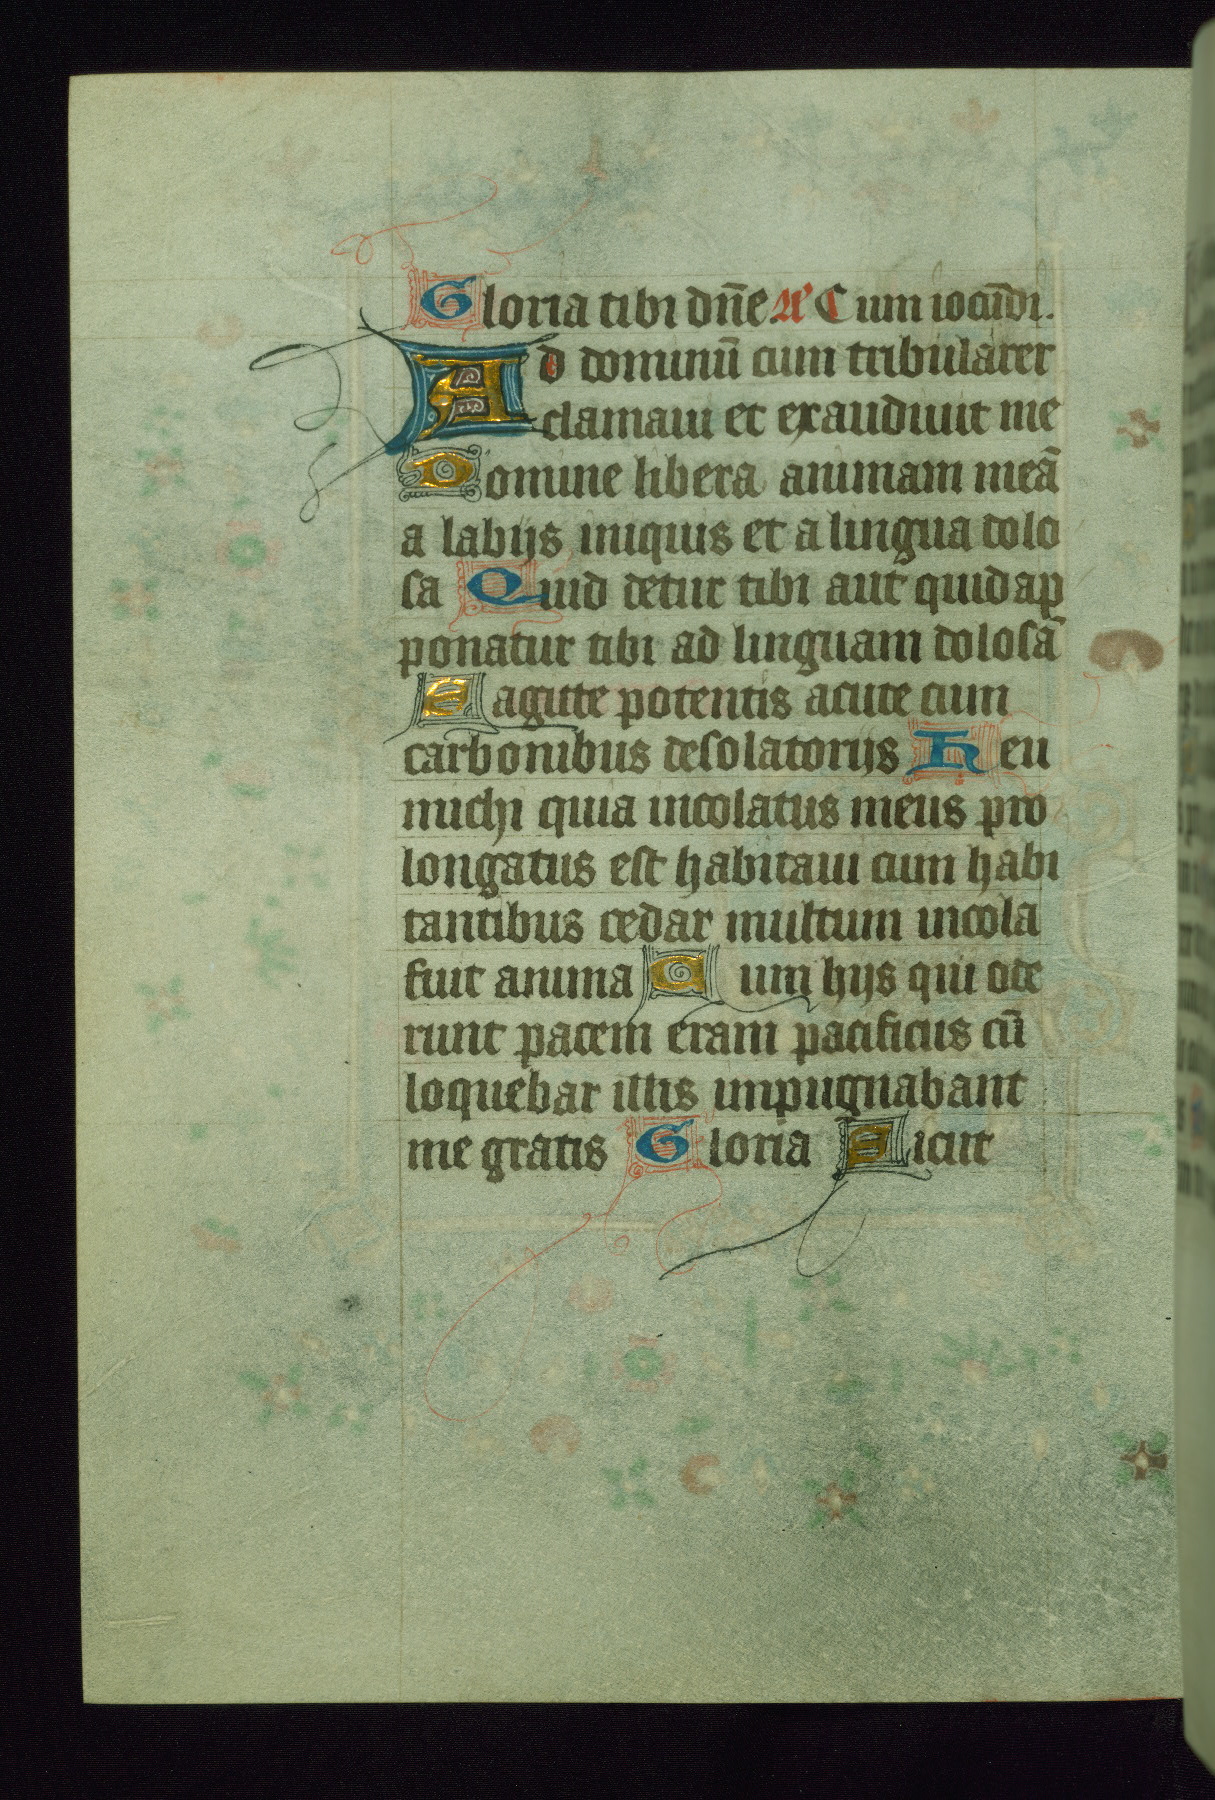 Gloria tibi dn̄e Aͬ Cum iocūdi.
Ad dominū cum tribularer
clamaui et exaudiuit me
Domine libera animam meā
a labijs iniquis et a lingua dolo
sa Quid detur tibi aut quid ap
ponatur tibi ad linguam dolosā
Sagitte potentis acute cum
carbonibus desolatorijs Heu
michi quia incolatus meus pro
longatus est habitaui cum habi
tantibus cedar multum incola
fuit anima Cum hijs qui ode
runt pacem eram pacificus cū
loquebar illis impugnabant
me gratis Gloria Sicut